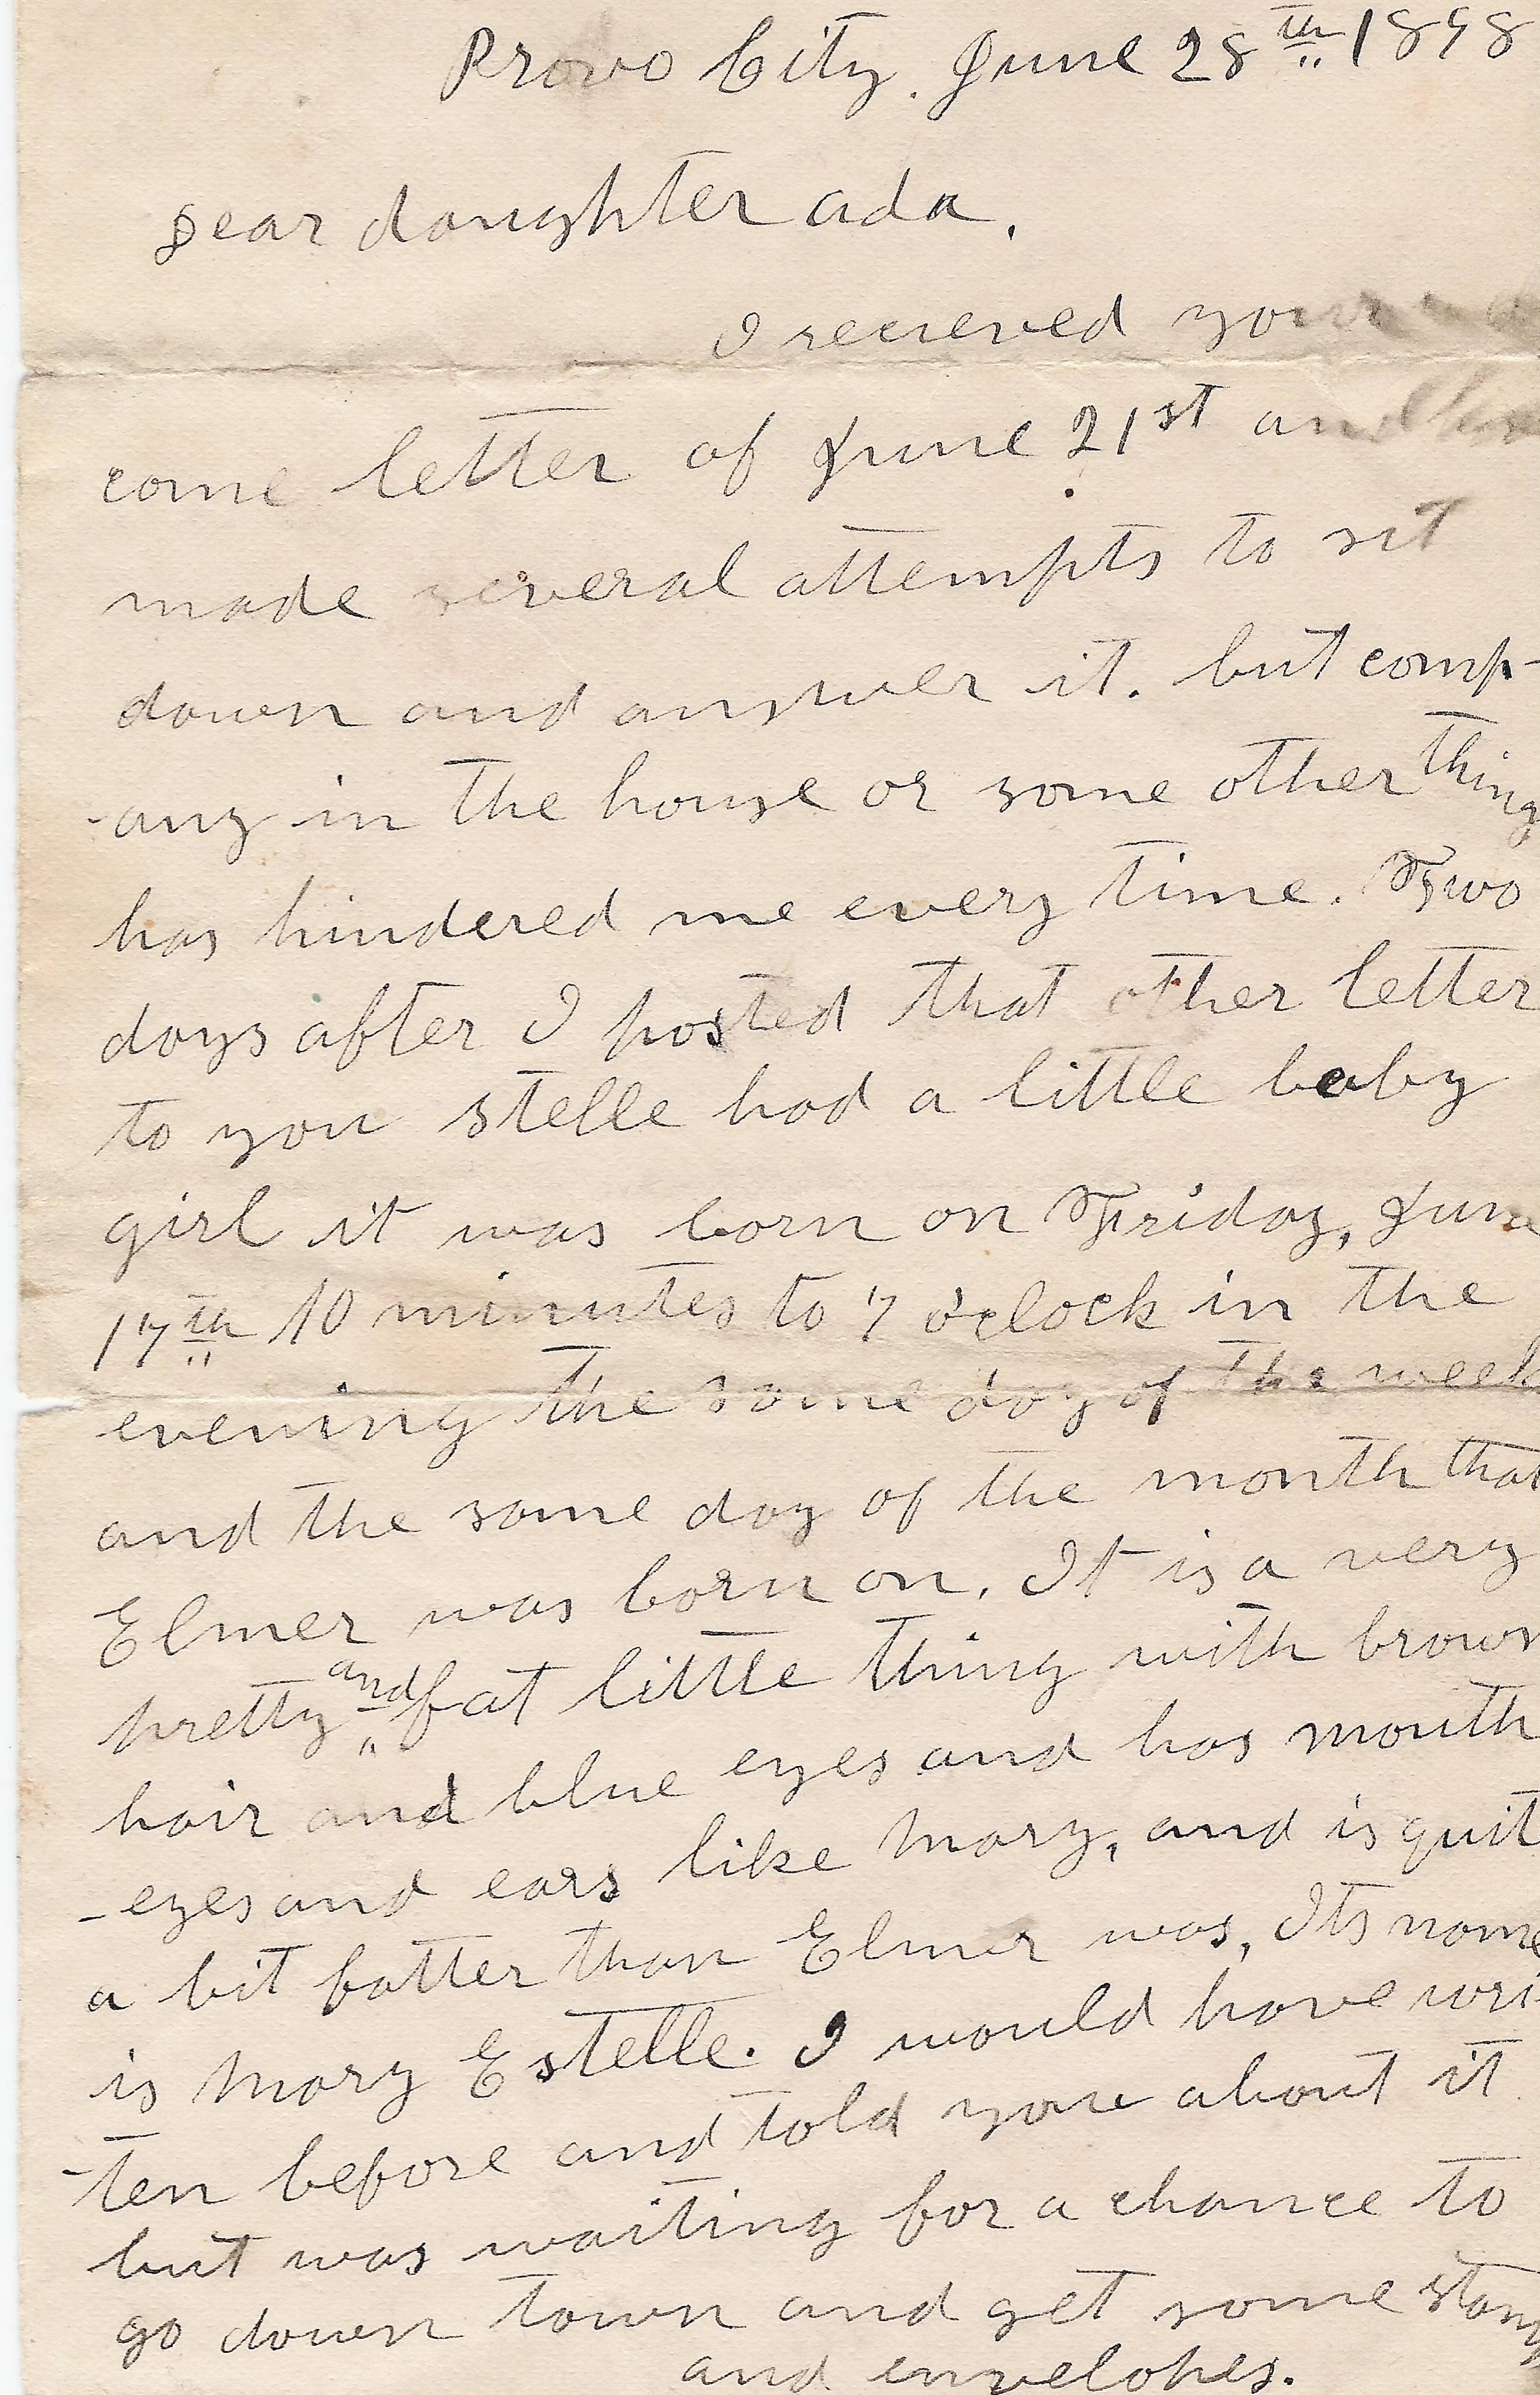 Provo City. June 28th 1898
Dear daughter Ada,
I recieved your
come letter of June 21st and
made several attempts to sit
down and answer it. but comp-
-any in the house or some other thing
has hindered me every time. Two
days after I posted that other letter
to you Stelle had a little baby
girl it was born on Friday, June
17th 10 minutes to 7 o'clock in the
evening the same day of the week
and the same day of the month that
Elmer was born on. It is a very
pretty and fat little thing with brown
hair and blue eyes and has mouth
-eyes and ears like Mary, and is quit
a bit fatter than Elmer was, Its name
is Mary Estelle. I would have wri-
-ten before and told youe about it
but was waiting for a chance to
go down town and get some
and envelopes.